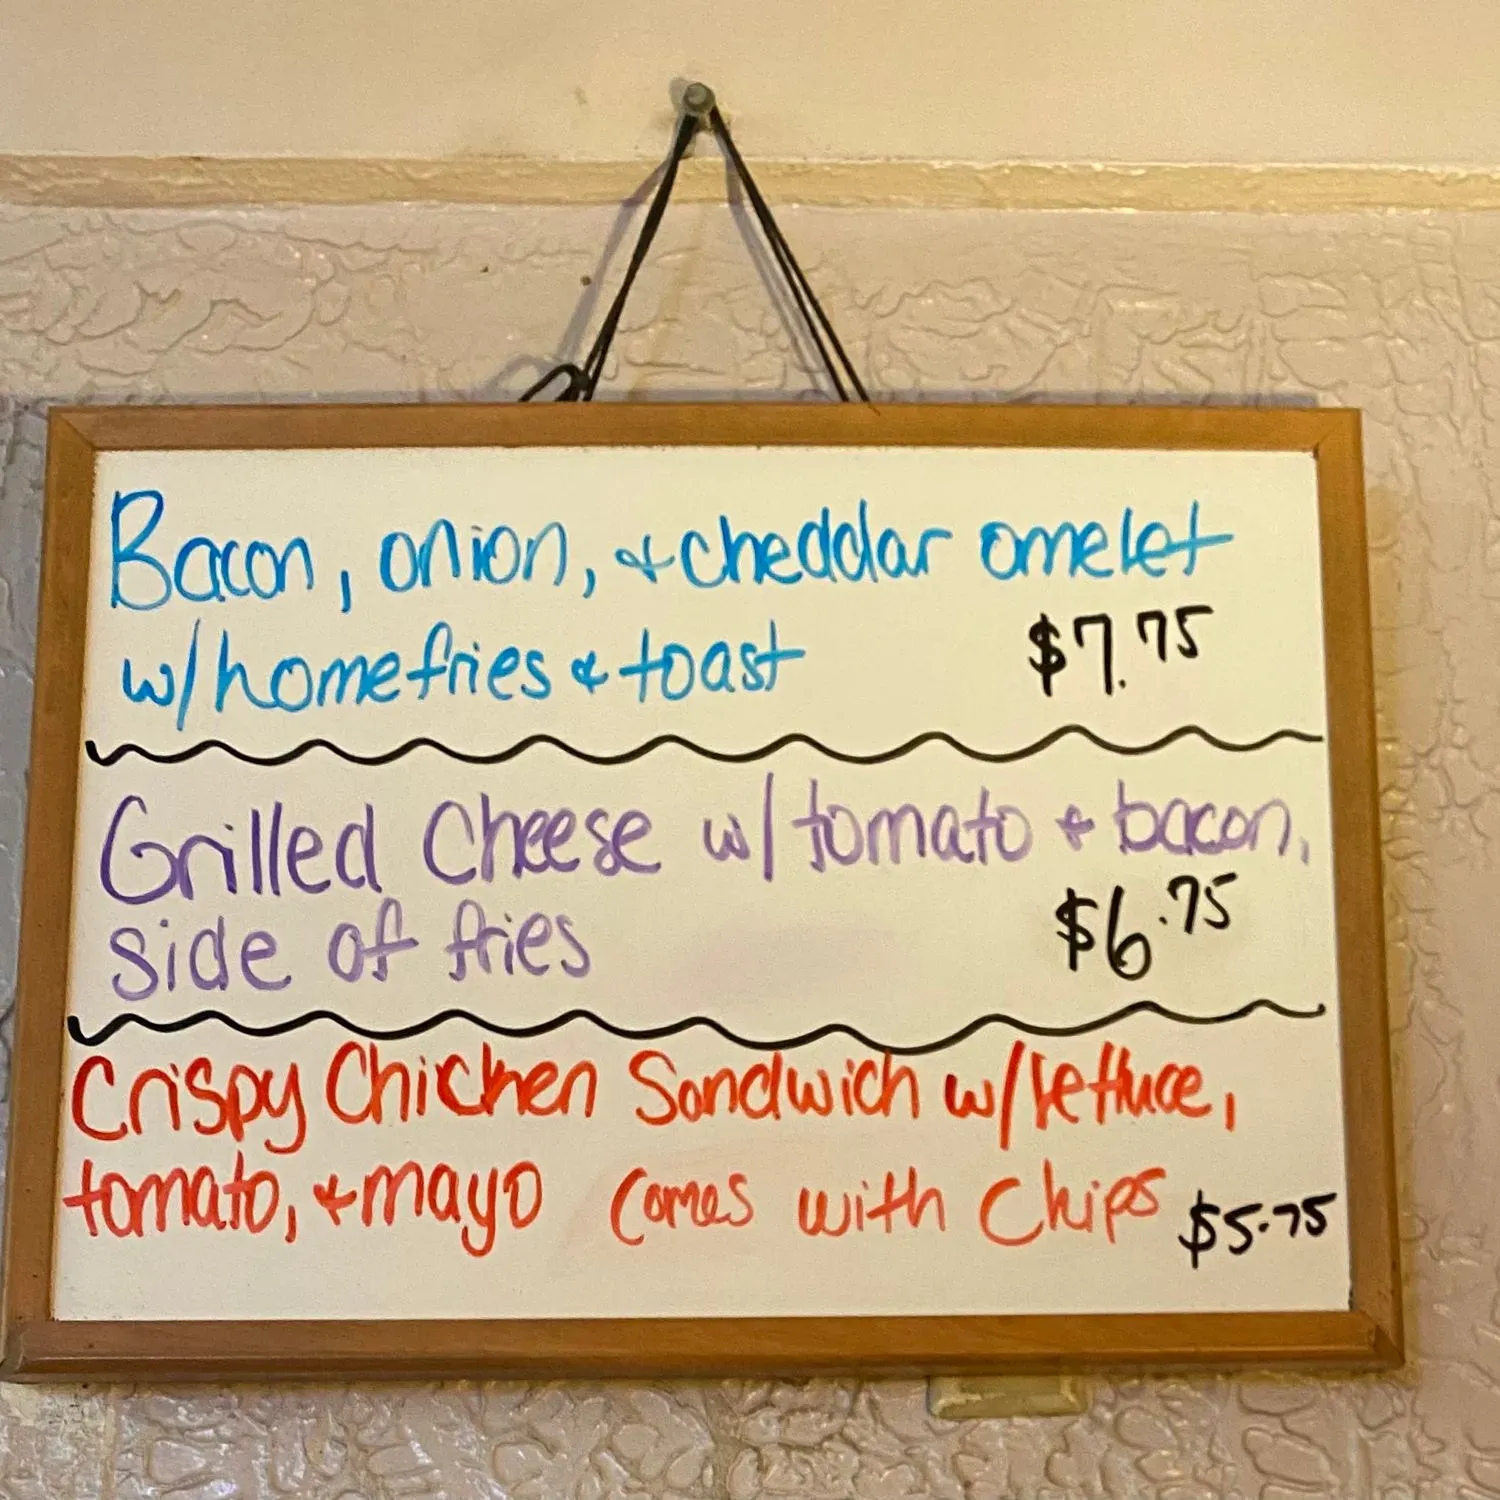 Bacon, onion, & cheddar omelet
w/homefries & toast $7.75
Grilled Cheese w/tomato & bacon,
side of fries $6.75
Crispy Chicken Sandwich w/lettuce,
tomato, & mayo Comes with Chips $5.75